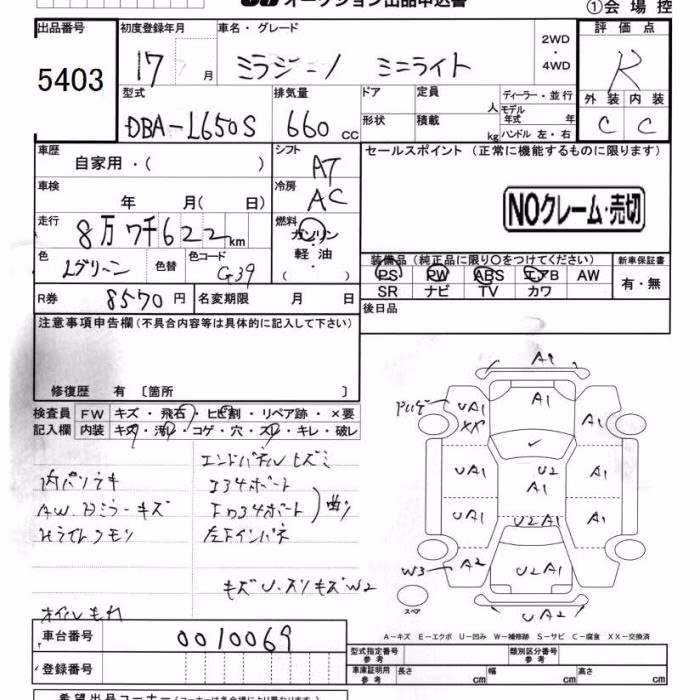 オークション出品申込書
①会場控
出品番号
5403
初度登録年月
17 月
車名・グレード
ミラジーノ ミニライト
2WD
・
4WD
評価点
R
外装 内装
C C
型式
DBA-L650S
排気量
660 cc
ドア
形状
定員
人
積載
kg
ディーラー・並行
モデル
年式 年
ハンドル 左・右
車歴
自家用・( )
シフト
AT
セールスポイント (正常に機能するものに限ります)
NOクレーム・売切
車検
年 月( 日)
冷房
AC
走行
8万7千622km
燃料
ガソリン
軽油
( )
色
Lグリーン
色替
色コード
G39
装備品(純正品に限り○をつけてください)
PS PW ABS エアB AW
SR ナビ TV カワ
新車保証書
有・無
R券
8570円
名変期限 月 日
後日品
注意事項申告欄(不具合内容等は具体的に記入して下さい)
修復歴 有〔箇所 〕
検査員
記入欄
FW キズ・飛石・ヒビ割・リペア跡・×要
内装 キズ・汚レ・コゲ・穴・スレ・キレ・破レ
エンドパネルヒズミ
A.W.ドミラーキズ
キズU.スリキズW2
オイルもれ
A1
A1
UA1
XX
A1
UA1
U2
A1
A1
UA1
U2A1
A1
W3
A2
U2A1
UA2
スペア
A-キズ E-エクボ U-凹み W-補修跡 S-サビ C-腐食 XX-交換済
車台番号
0010069
登録番号
型式指定番号
参考
類別区分番号
参考
車庫証明用
参考
長さ cm 幅 cm 高さ cm
希望出品コーナー(コーナーは各会場により異なります)